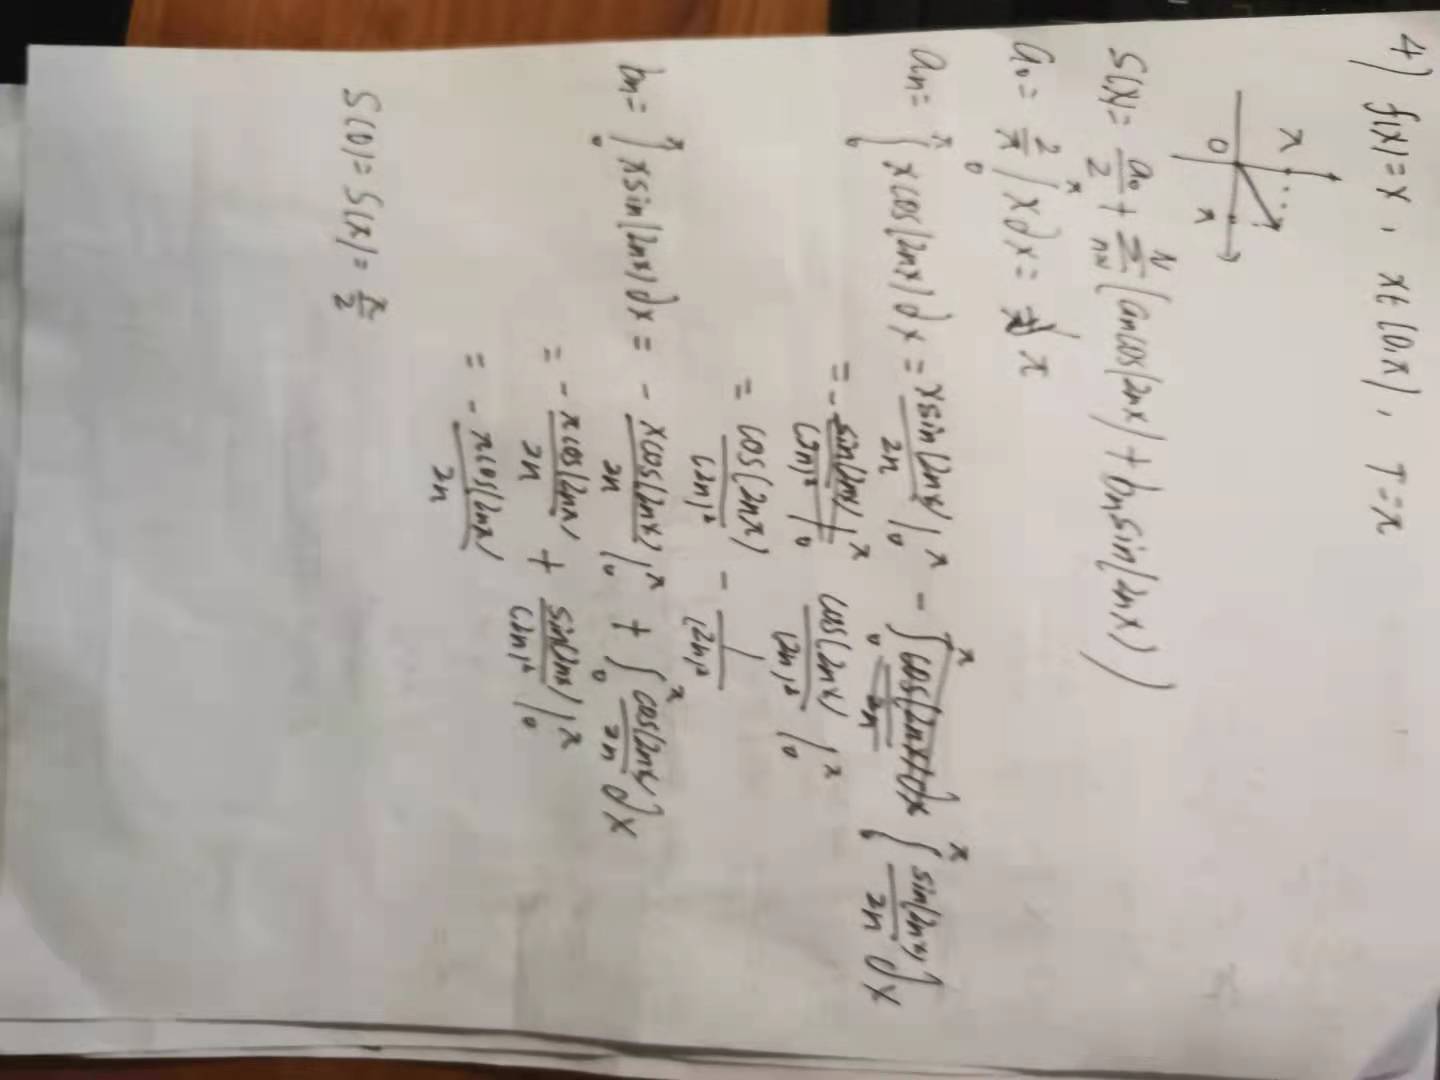 4) f(x)=x, x∈[0,π], T=π
π
0 π
S(x)= a₀/2 + Σ_{n=1}^{N} (aₙcos(2nx)+bₙsin(2nx))
a₀= 2/π ∫₀^π xdx= π
aₙ= ∫₀^π xcos(2nx)dx = xsin(2nx)/2n |₀^π - ∫₀^π sin(2nx)/2n dx
= cos(2nx)/(2n)² |₀^π
= cos(2nπ)/(2n)² - 1/(2n)²
bₙ= ∫₀^π xsin(2nx)dx = - xcos(2nx)/2n |₀^π + ∫₀^π cos(2nx)/2n dx
= - πcos(2nπ)/2n + sin(2nx)/(2n)² |₀^π
= - πcos(2nπ)/2n
S(0)=S(π)= π/2